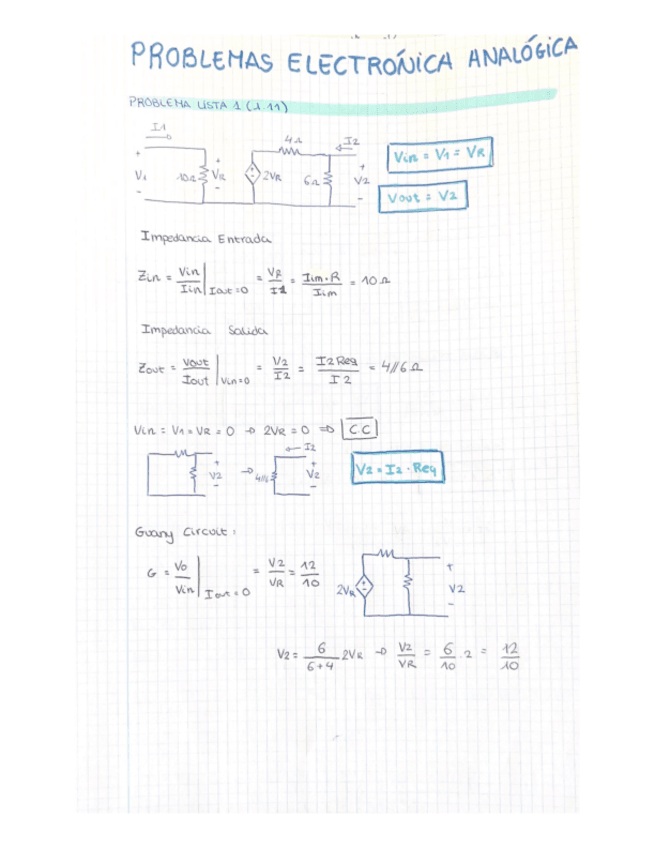 PROBLEMAS ELECTRÓNICA ANALÓGICA
PROBLEMA LISTA 1 (1.11)
I1
4Ω
I2
+ V1 -
10Ω
+ VR -
2VR
6Ω
+ V2 -
Vin = V1 = VR
Vout = V2
Impedancia Entrada
Zin = Vin/Iin | Iout=0 = VR/I1 = Iim·R/Iim = 10Ω
Impedancia Salida
Zout = Vout/Iout | Vin=0 = V2/I2 = I2 Req/I2 = 4//6Ω
Vin = V1 = VR = 0 → 2VR = 0 ⇒ CC
+ V2 -
→
4//6
← I2
+ V2 -
V2 = I2 · Req
Guany Circuit:
G = Vo/Vin | Iout=0 = V2/VR = 12/10
2VR
+ V2 -
V2 = 6/(6+4) 2VR → V2/VR = 6/10 · 2 = 12/10